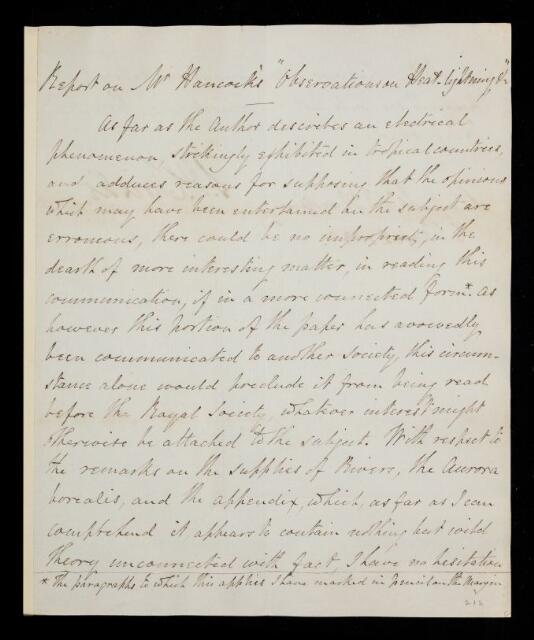 Report on Mr Hancock's "Observations on Heat-lightning &c"
As far as the Author describes an electrical
phenomenon, strikingly exhibited in tropical countries,
and adduces reasons for supposing that the opinions
which may have been entertained on the subject are
erroneous, there could be no impropriety, in the
dearth of more interesting matter, in reading this
communication, if in a more connected form.* As
however this portion of the paper has avowedly
been communicated to another Society, this circum-
stance alone would preclude it from being read
before the Royal Society, whatever interest might
otherwise be attached to the subject. With respect to
the remarks on the supplies of Rivers, the Aurora
borealis, and the appendix, which, as far as I can
comprehend it, appears to contain nothing but wild
theory unconnected with fact, I have no hesitation
* The paragraphs to which this applies I have marked in pencil on the Margin
212